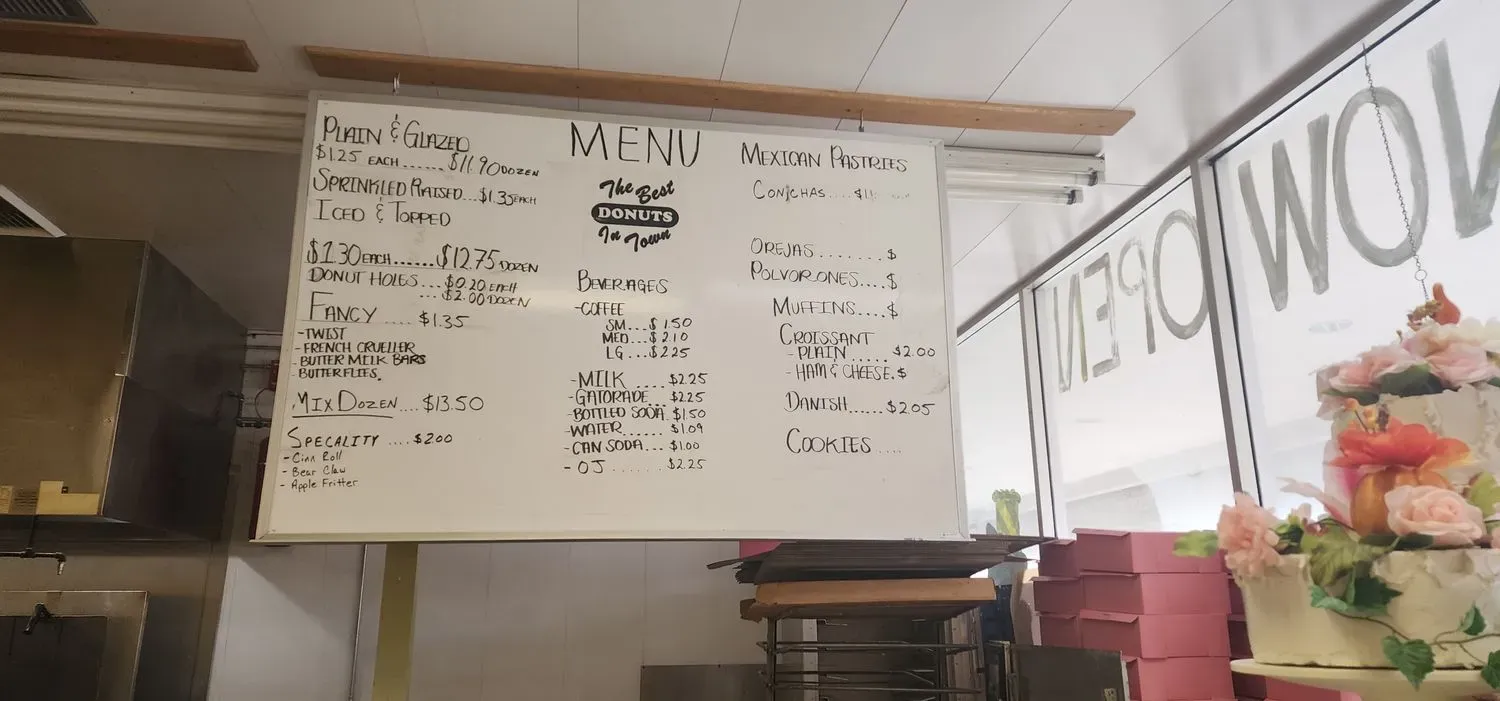 PLAIN & GLAZED
$1.25 EACH ...... $11.90 DOZEN
SPRINKLED RAISED...$1.35 EACH
ICED & TOPPED
$1.30 EACH ...... $12.75 DOZEN
DONUT HOLES ... $0.20 EACH
... $2.00 DOZEN
FANCY .... $1.35
- TWIST
- FRENCH CRUELLER
- BUTTER MILK BARS
- BUTTERFLIES.
MIX DOZEN .... $13.50
SPECALITY .... $2.00
- Cinn Roll
- Bear Claw
- Apple Fritter
MENU
The Best
DONUTS
In Town
BEVERAGES
- COFFEE
SM...$1.50
MED...$2.10
LG ...$2.25
- MILK .... $2.25
- GATORADE... $2.25
- BOTTLED SODA. $1.50
- WATER...... $1.09
- CAN SODA... $1.00
- OJ ...... $2.25
MEXICAN PASTRIES
CONCHAS....
OREJAS ....... $
POLVORONES....$
MUFFINS....$
CROISSANT
- PLAIN ..... $2.00
- HAM & CHEESE.$
DANISH......$2.05
COOKIES ....
NOW OPEN